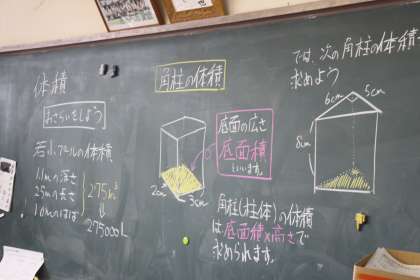 体積
おさらいをしよう
若小プールの体積
1.1mの深さ
25mの長さ
10mのはば
275m³
275000L
角柱の体積
2cm
3cm
底面の広さ
底面積
といいます。
角柱(柱体)の体積
は底面積×高さで
求められます。
では、次の角柱の体積を
求めよう
6cm
5cm
8cm